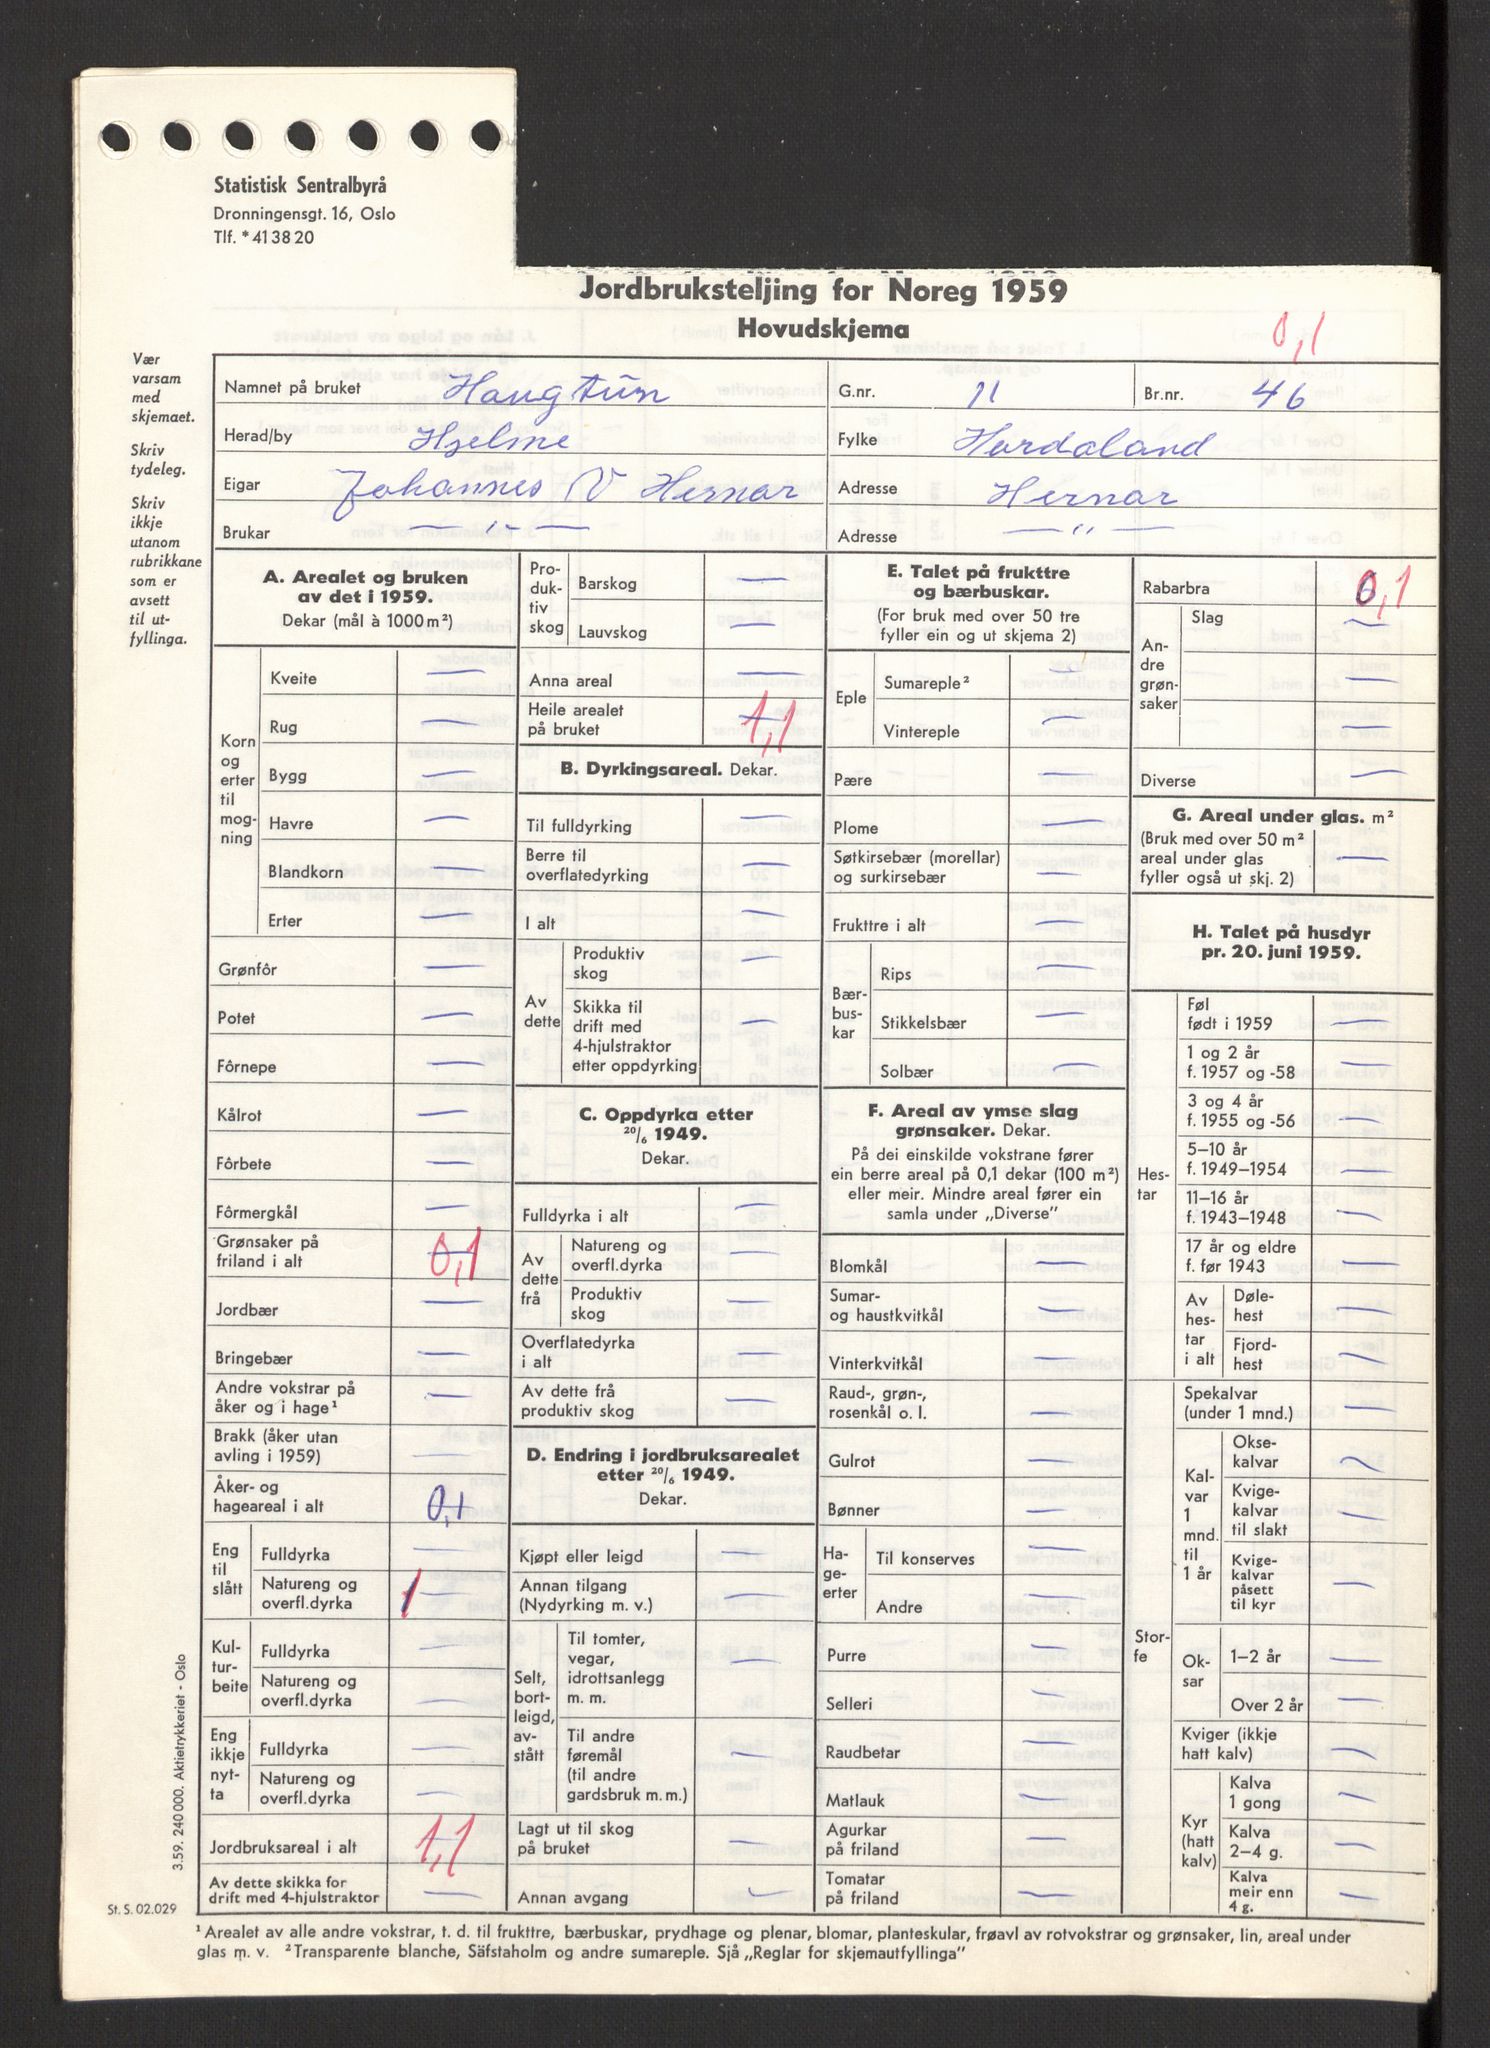 Statistisk Sentralbyrå
Dronningensgt. 16, Oslo
Tlf. * 41 38 20
Jordbruksteljing for Noreg 1959
Hovudskjema
0,1
Vær
varsam
med
skjemaet.
Skriv
tydeleg.
Skriv
ikkje
utanom
rubrikkane
som er
avsett
til ut-
fyllinga.
Namnet på bruket Haugtun G.nr. 11 Br.nr. 46
Herad/by Hjelme Fylke Hordaland
Eigar Johannes N Hernar Adresse Hernar
Brukar — „ — Adresse — „ —
A. Arealet og bruken
av det i 1959.
Dekar (mål à 1000 m²)
Korn
og
erter
til
mog-
ning
Kveite —
Rug —
Bygg —
Havre —
Blandkorn —
Erter —
Grønfôr —
Potet —
Fôrnepe —
Kålrot —
Fôrbete —
Fôrmergkål —
Grønsaker på
friland i alt 0,1
Jordbær —
Bringebær —
Andre vokstrar på
åker og i hage¹ —
Brakk (åker utan
avling i 1959) —
Åker- og
hageareal i alt 0,1
Eng
til
slått
Fulldyrka —
Natureng og
overfl.dyrka 1
Kul-
tur-
beite
Fulldyrka —
Natureng og
overfl.dyrka —
Eng
ikkje
nyt-
ta
Fulldyrka —
Natureng og
overfl.dyrka —
Jordbruksareal i alt 1,1
Av dette skikka for
drift med 4-hjulstraktor —
Pro-
duk-
tiv
skog
Barskog —
Lauvskog —
Anna areal —
Heile arealet
på bruket 1,1
B. Dyrkingsareal. Dekar.
Til fulldyrking —
Berre til
overflatedyrking —
I alt —
Av
dette
Produktiv
skog —
Skikka til
drift med
4-hjulstraktor
etter oppdyrking —
C. Oppdyrka etter
²⁰/₆ 1949.
Dekar.
Fulldyrka i alt —
Av
dette
frå
Natureng og
overfl.dyrka —
Produktiv
skog —
Overflatedyrka
i alt —
Av dette frå
produktiv skog —
D. Endring i jordbruksarealet
etter ²⁰/₆ 1949.
Dekar.
Kjøpt eller leigd —
Annan tilgang
(Nydyrking m. v.) —
Selt,
bort-
leigd,
av-
stått
Til tomter,
vegar,
idrottsanlegg
m. m. —
Til andre
føremål
(til andre
gardsbruk m. m.) —
Lagt ut til skog
på bruket —
Annan avgang —
E. Talet på frukttre
og bærbuskar.
(For bruk med over 50 tre
fyller ein og ut skjema 2)
Eple
Sumareple² —
Vintereple —
Pære —
Plome —
Søtkirsebær (morellar)
og surkirsebær —
Frukttre i alt —
Bær-
bus-
kar
Rips —
Stikkelsbær —
Solbær —
F. Areal av ymse slag
grønsaker. Dekar.
På dei einskilde vokstrane fører
ein berre areal på 0,1 dekar (100 m²)
eller meir. Mindre areal fører ein
samla under „Diverse”
Blomkål —
Sumar-
og haustkvitkål —
Vinterkvitkål —
Raud-, grøn-,
rosenkål o. l. —
Gulrot —
Bønner —
Ha-
ge-
erter
Til konserves —
Andre —
Purre —
Selleri —
Raudbetar —
Matlauk —
Agurkar
på friland —
Tomatar
på friland —
Rabarbra 0,1
An-
dre
grøn-
saker
Slag —
—
—
Diverse —
G. Areal under glas. m²
(Bruk med over 50 m²
areal under glas
fyller også ut skj. 2) —
H. Talet på husdyr
pr. 20. juni 1959.
Hes-
tar
Føl
født i 1959 —
1 og 2 år
f. 1957 og -58 —
3 og 4 år
f. 1955 og -56 —
5–10 år
f. 1949–1954 —
11–16 år
f. 1943–1948 —
17 år og eldre
f. før 1943 —
Av
hes-
tar
i alt
Døle-
hest —
Fjord-
hest —
Stor-
fe
Spekalvar
(under 1 mnd.) —
Kal-
var
1
mnd.
til
1 år
Okse-
kalvar —
Kvige-
kalvar
til slakt —
Kvige-
kalvar
påsett
til kyr —
Ok-
sar
1–2 år —
Over 2 år —
Kviger (ikkje
hatt kalv) —
Kyr
(hatt
kalv)
Kalva
1 gong —
Kalva
2–4 g. —
Kalva
meir enn
4 g. —
3.59. 240 000. Aktietrykkeriet - Oslo
St. S. 02.029
¹ Arealet av alle andre vokstrar, t. d. til frukttre, bærbuskar, prydhage og plenar, blomar, planteskular, frøavl av rotvokstrar og grønsaker, lin, areal under
glas m. v. ² Transparente blanche, Säfstaholm og andre sumareple. Sjå „Reglar for skjemautfyllinga”